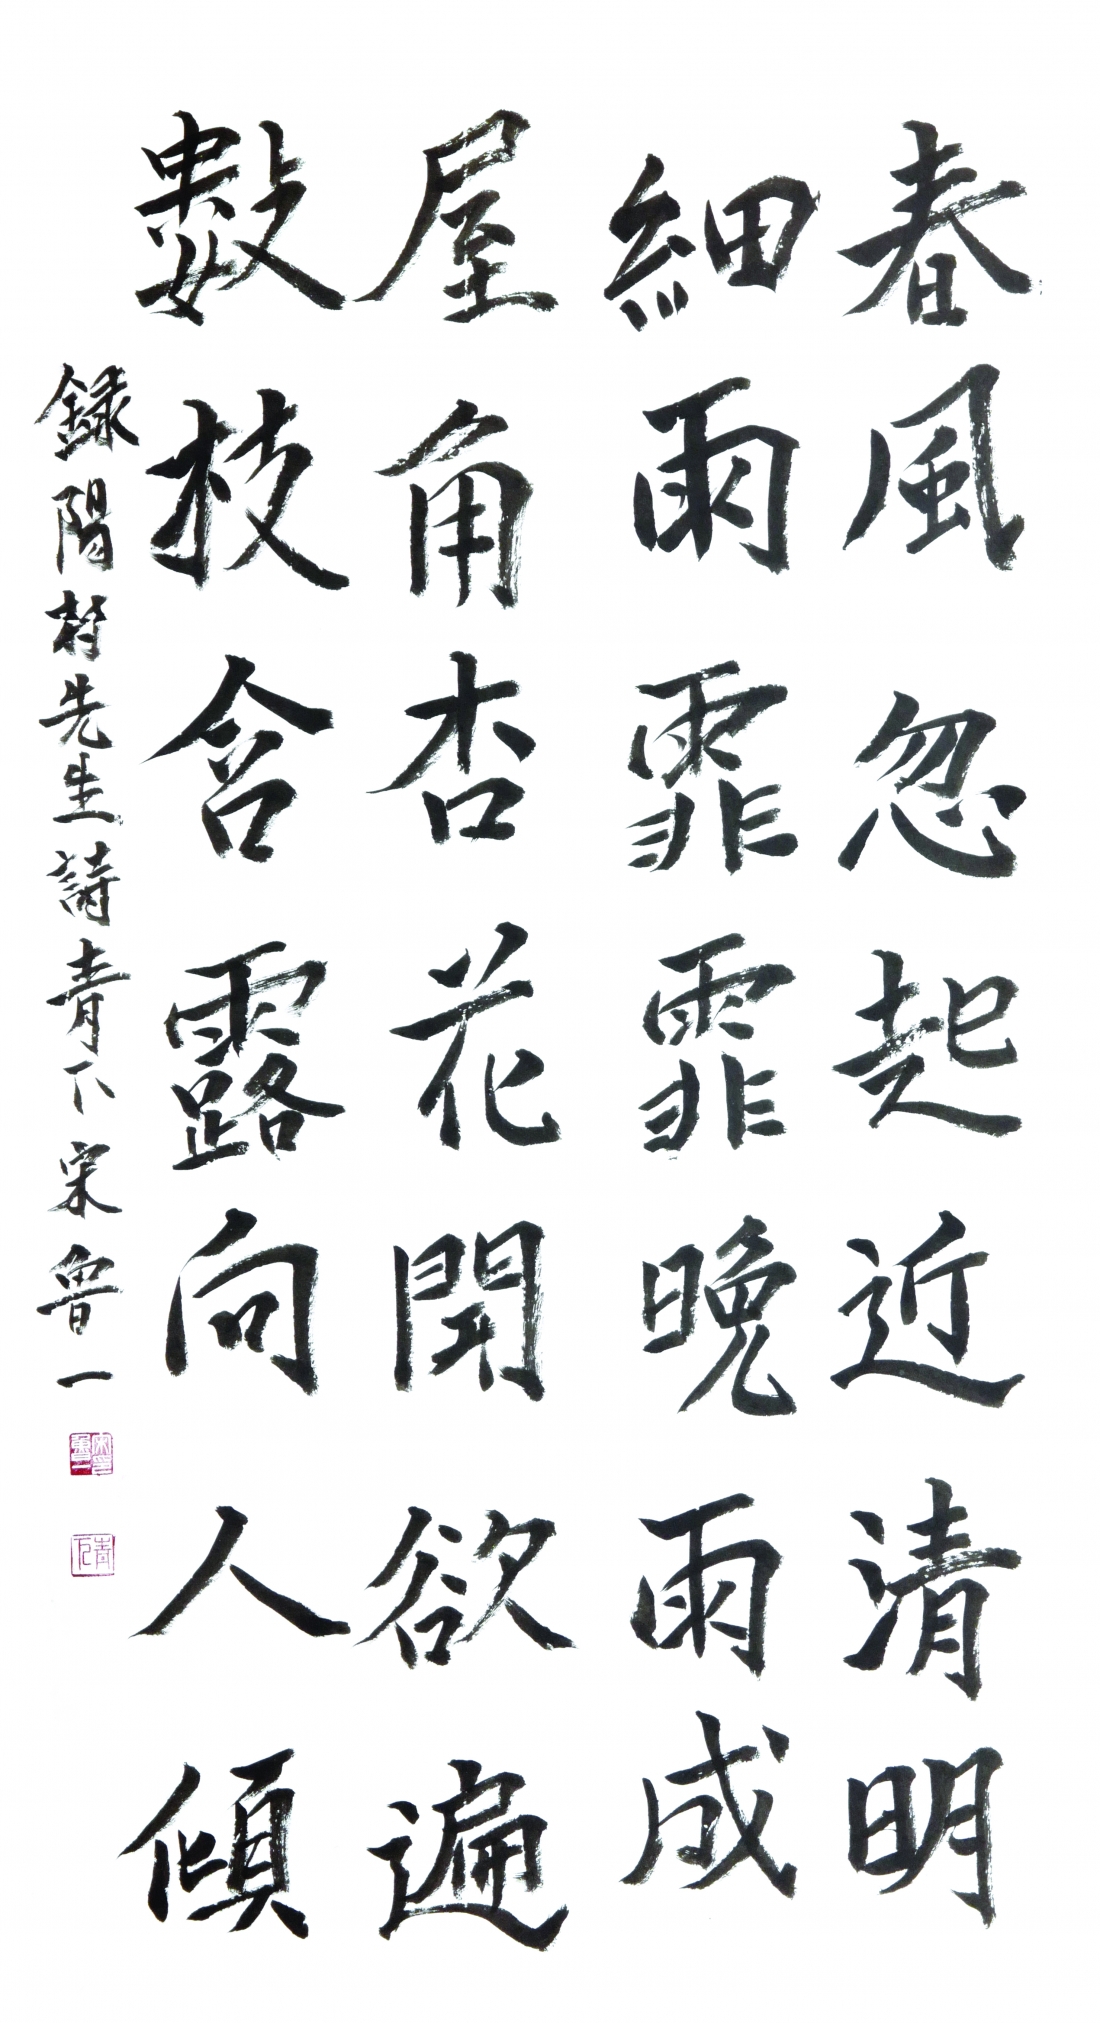 春風忽起近清明
細雨霏霏晚雨成
屋角杏花開欲遍
數枝含露向人傾
錄陽村先生詩青下宋魯一